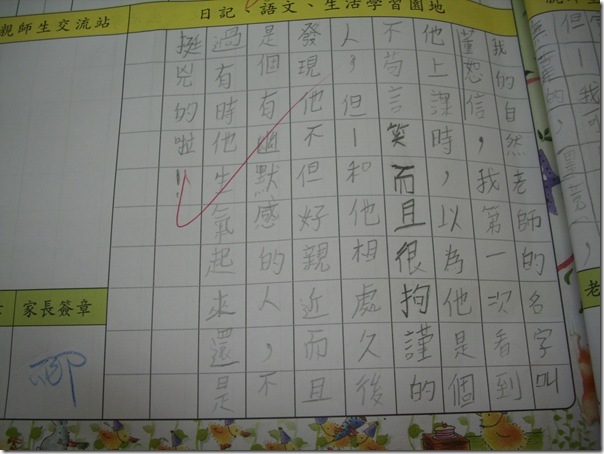 日記、語文、生活學習園地
我的自然老師的名字叫
董恕信,我第一次看到
他上課時,以為他是個
不苟言笑而且很拘謹的
人,但一和他相處久後
發現他不但好親近而且
是個有幽默感的人,不
過有時他生氣起來還是
挺兇的啦!
親師生交流站
家長簽章
老